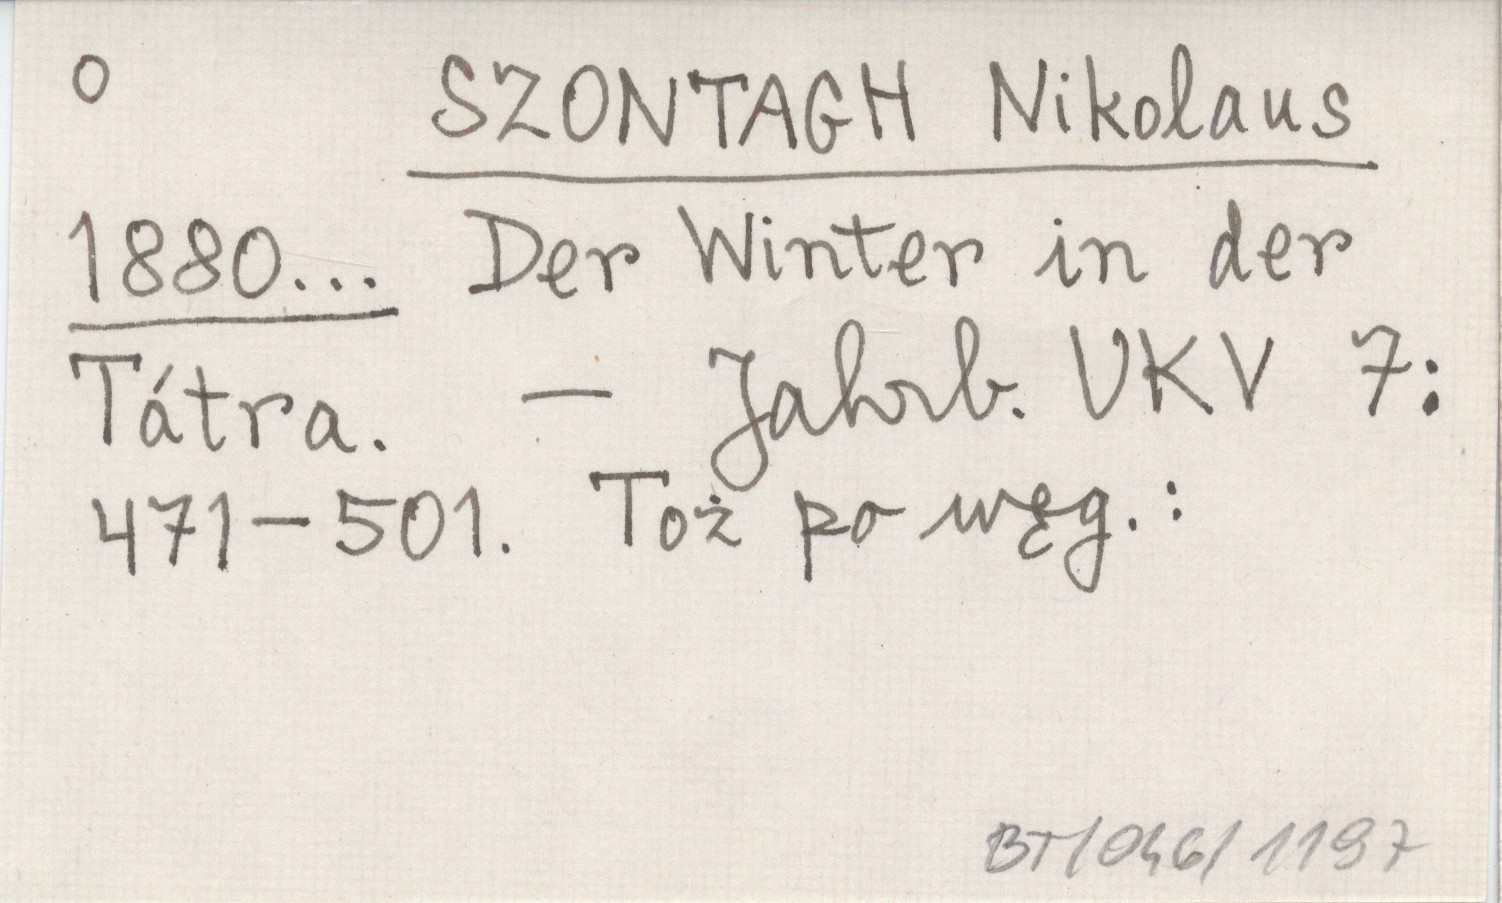 o SZONTAGH Nikolaus
1880... Der Winter in der
Tátra. — Jahrb. UKV 7:
471-501. Toż po węg.:
BT/046/1197